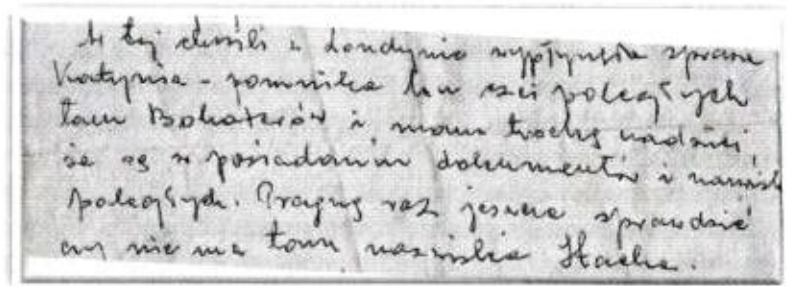 W tej chwili w Londynie wypłynęła sprawa
Katynia - pomnika ku czci poległych
tam Bohaterów i mam trochę nadziei,
że są w posiadaniu dokumentów i nazwisk
poległych. Pragnę raz jeszcze sprawdzić
czy nie ma tam nazwiska Stacha.